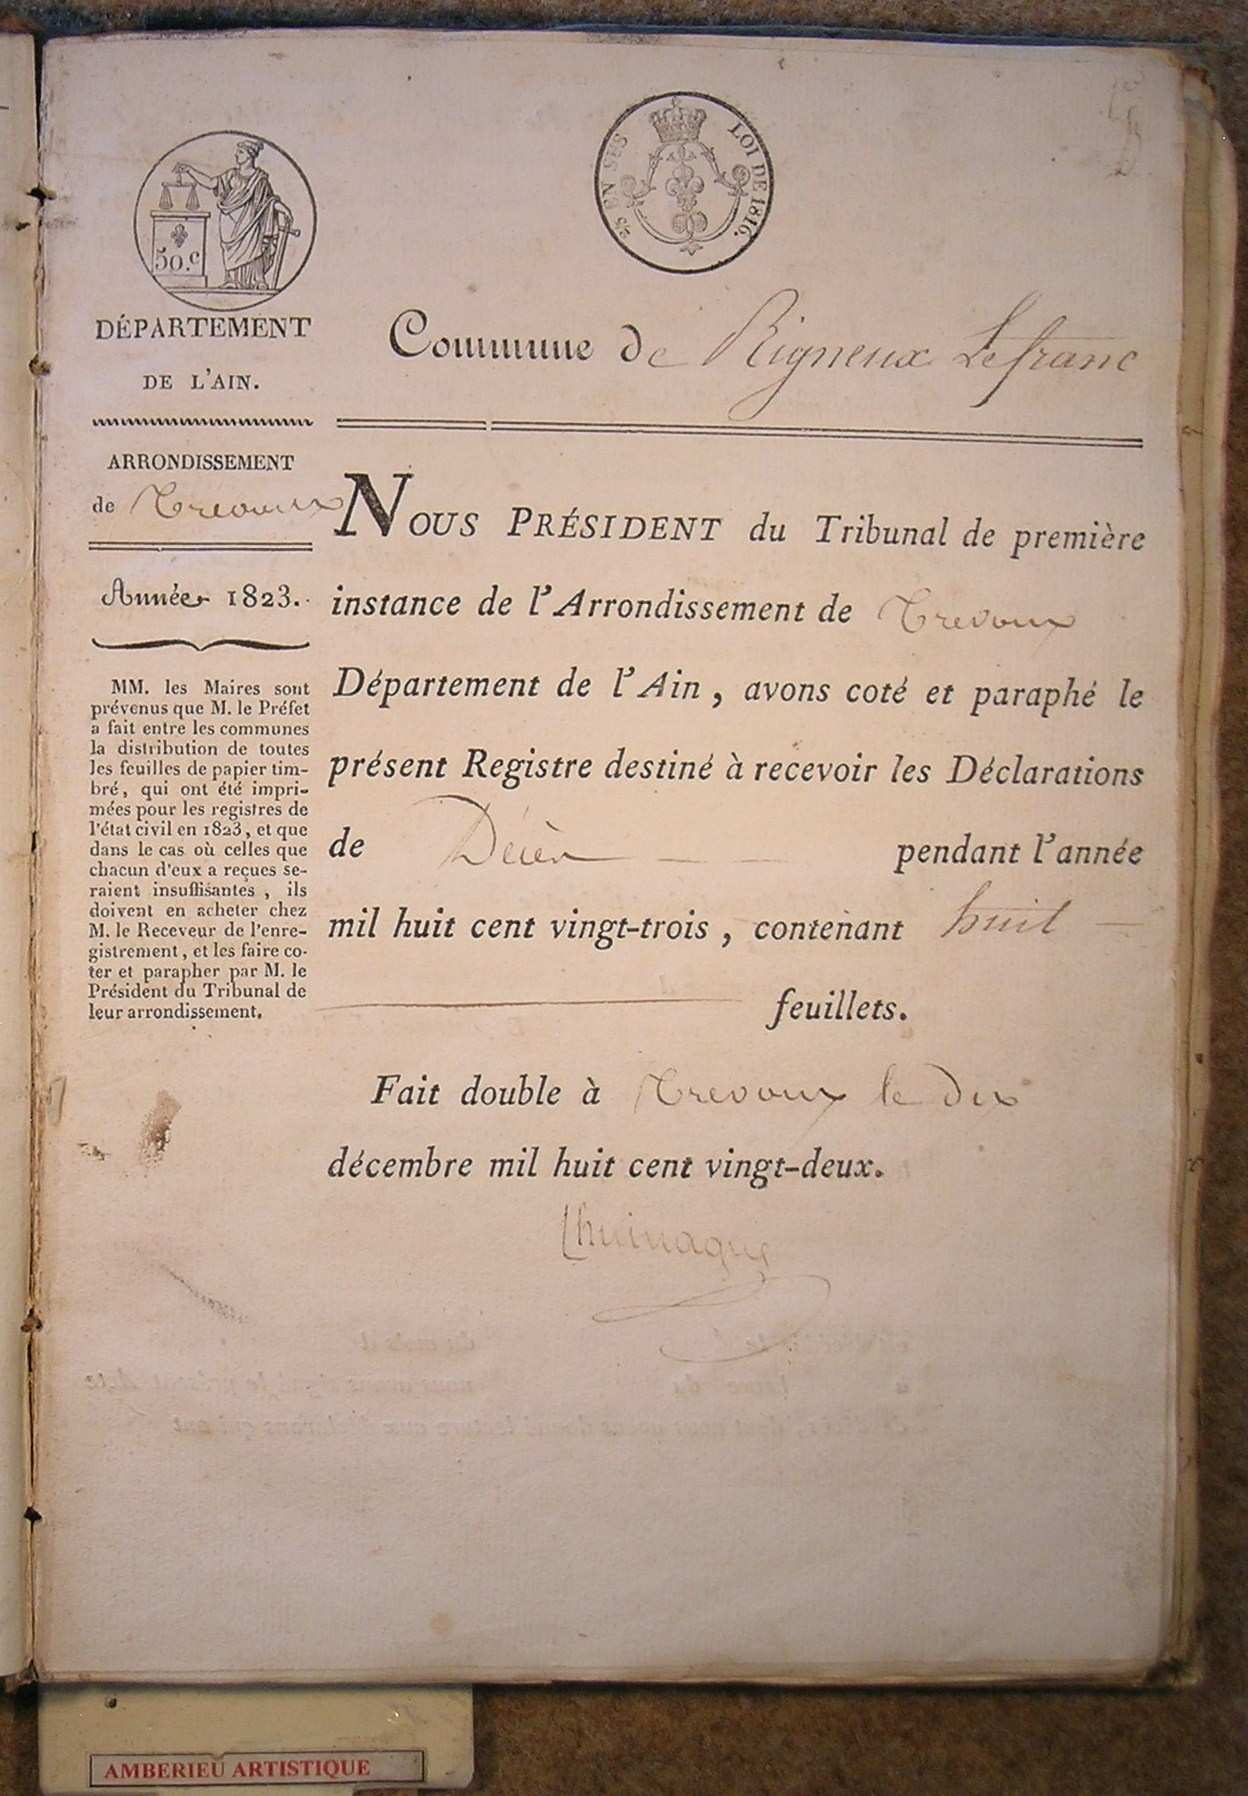 50.c
25 EN SUS
LOI DE 1816.
DÉPARTEMENT
DE L'AIN.
Commune de Rigneux Lefranc
ARRONDISSEMENT
de Trévoux
Année 1823.
MM. les Maires sont
prévenus que M. le Préfet
a fait entre les communes
la distribution de toutes
les feuilles de papier tim-
bré, qui ont été impri-
mées pour les registres de
l'état civil en 1823, et que
dans le cas où celles que
chacun d'eux a reçues se-
raient insuffisantes, ils
doivent en acheter chez
M. le Receveur de l'enre-
gistrement, et les faire co-
ter et parapher par M. le
Président du Tribunal de
leur arrondissement.
NOUS PRÉSIDENT du Tribunal de première
instance de l'Arrondissement de Trevoux
Département de l'Ain, avons coté et paraphé le
présent Registre destiné à recevoir les Déclarations
de Décès pendant l'année
mil huit cent vingt-trois, contenant huit
feuillets.
Fait double à Trevoux le dix
décembre mil huit cent vingt-deux.
AMBERIEU ARTISTIQUE